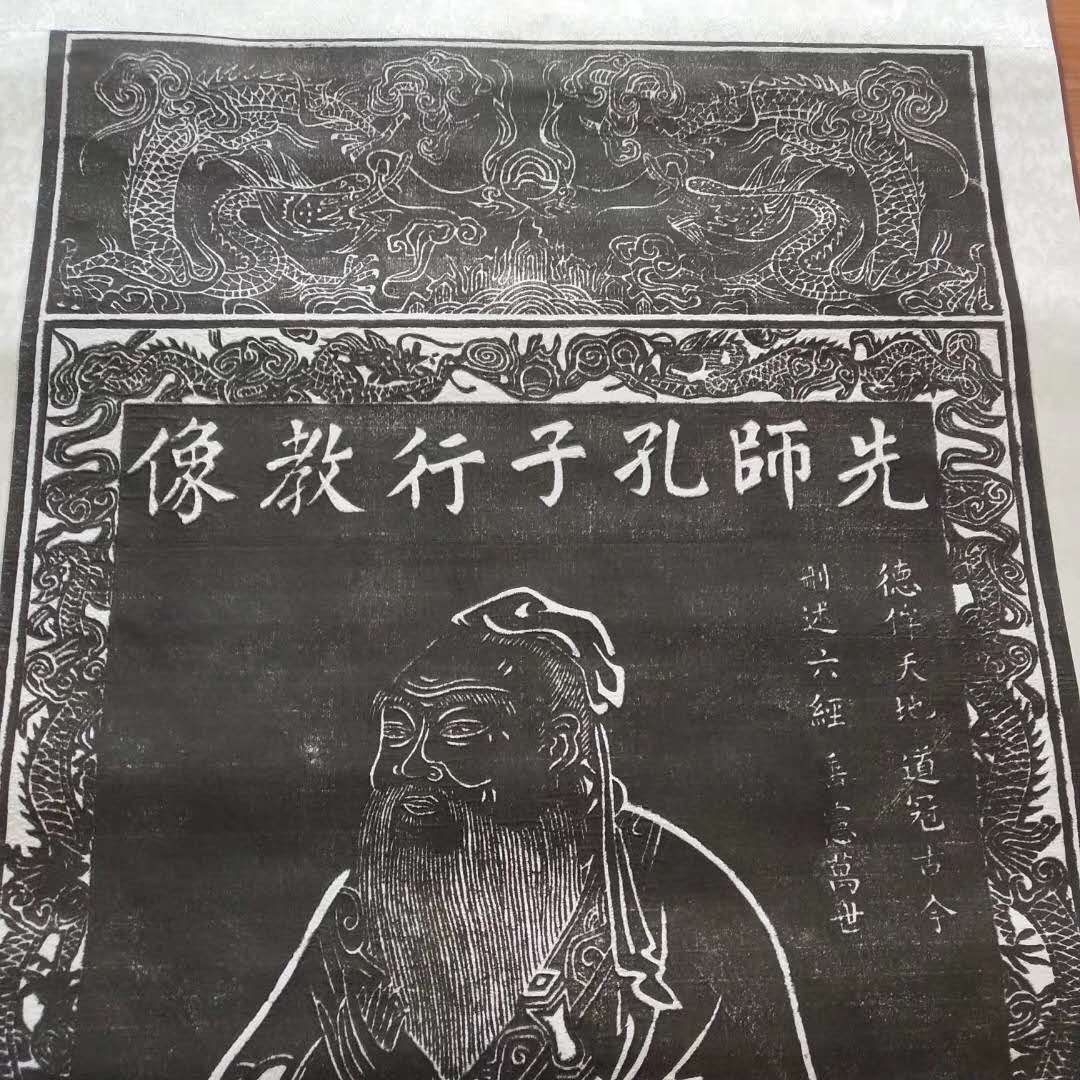 先師孔子行教像
德侔天地道冠古今
刪述六經垂憲萬世